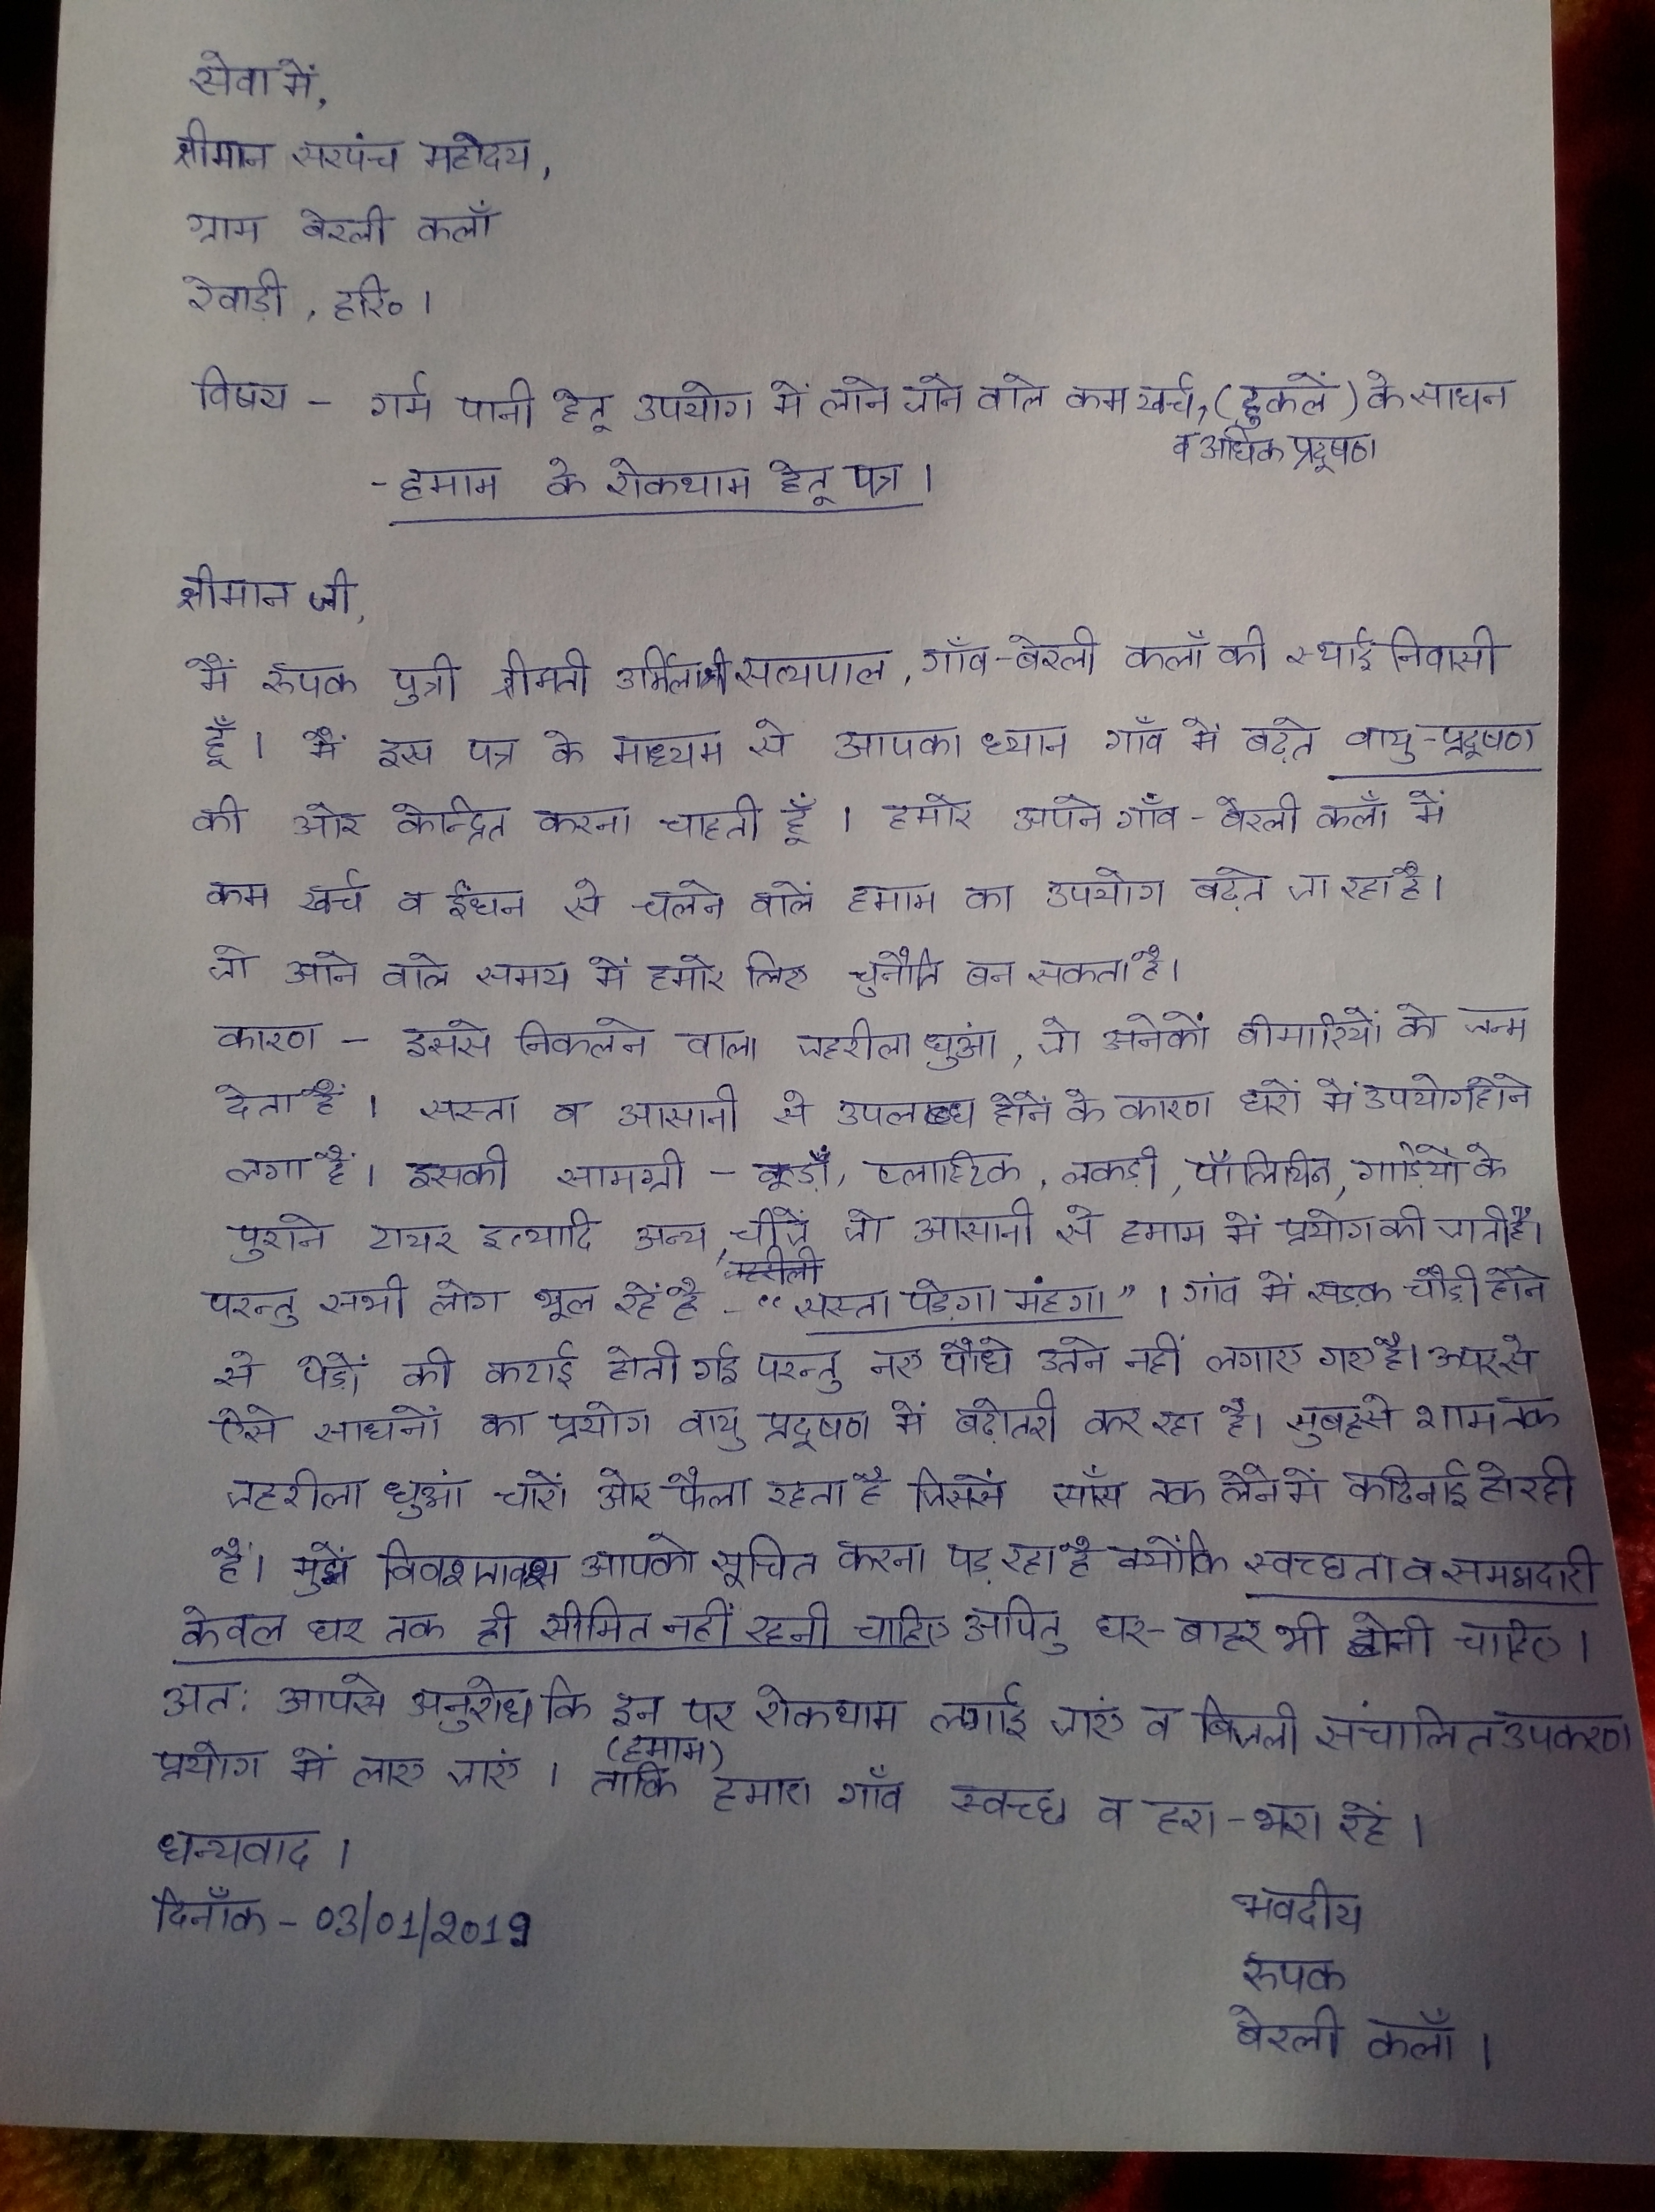 सेवा में,
श्रीमान सरपंच महोदय,
ग्राम बेरली कलाँ
रेवाड़ी, हरि० ।
विषय - गर्म पानी हेतू उपयोग में लाने जाने वाले कम खर्च, (हुकलें) के साधन
व अधिक प्रदूषण
- हमाम के रोकथाम हेतू पत्र ।
श्रीमान जी,
मैं रुपक पुत्री श्रीमती उर्मिला श्री सत्यपाल, गाँव-बेरली कलाँ की स्थाई निवासी
हूँ । मैं इस पत्र के माध्यम से आपका ध्यान गाँव में बढ़ते वायु-प्रदूषण
की ओर केन्द्रित करना चाहती हूँ । हमारे अपने गाँव - बेरली कलाँ में
कम खर्च व ईंधन से चलने वालें हमाम का उपयोग बढ़ते जा रहा है।
जो आने वाले समय में हमारे लिए चुनौति बन सकता है।
कारण - इससे निकलने वाला जहरीला धुआं, जो अनेकों बीमारियों को जन्म
देता हैं । सस्ता व आसानी से उपलब्ध होनें के कारण घरों में उपयोग होने
लगा हैं। इसकी सामग्री - कूड़ाँ, प्लास्टिक, लकड़ी, पॉलिथिन, गाड़ियों के
पुराने टायर इत्यादि अन्य, चीजें जो आसानी से हमाम में प्रयोग की जाती हैं।
जहरीली
परन्तु सभी लोग भूल रहें है - “सस्ता पड़ेगा मंहगा” । गांव में सड़क चौड़ी होने
से पेड़ों की कटाई होती गई परन्तु नए पौधे उतने नहीं लगाए गए है। ऊपर से
ऐसे साधनों का प्रयोग वायु प्रदूषण में बढ़ोतरी कर रहा है। सुबह से शाम तक
जहरीला धुआं चारों ओर फैला रहता है जिससें साँस तक लेने में कठिनाई हो रही
हैं। मुझें विवशतावश आपको सूचित करना पड़ रहा है क्योंकि स्वच्छता व समझदारी
केवल घर तक ही सीमित नहीं रहनी चाहिए अपितु घर-बाहर भी होनी चाहिए ।
अत: आपसे अनुरोध कि इन पर रोकथाम लगाई जाएं व बिजली संचालित उपकरण
(हमाम)
प्रयोग में लाए जाएं । ताकि हमारा गाँव स्वच्छ व हरा-भरा रहें ।
धन्यवाद ।
दिनाँक - 03/01/2019
भवदीय
रुपक
बेरली कलाँ ।